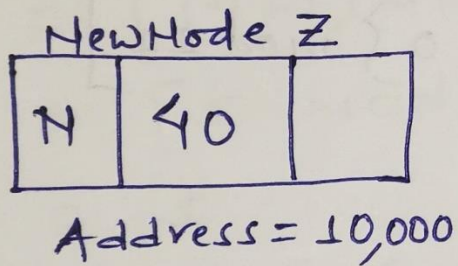 New Node Z
N 40
Address = 10,000